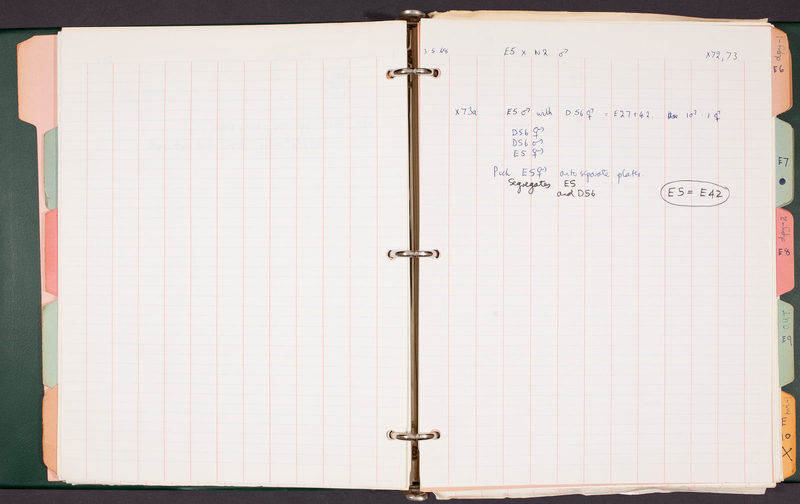 3.5.68 E5 x N2 ♂ X72, 73
X73a E5 ♂ with D56 ⚥ = E27+42. 10♂ : 1 ⚥
D56 ⚥
D56 ♂
E5 ⚥
Pick E5 ⚥ onto separate plates.
Segregates E5
and D56
E5 = E42
dpy-1
E6
E7
dpy-2
E8
E9
E
10
X